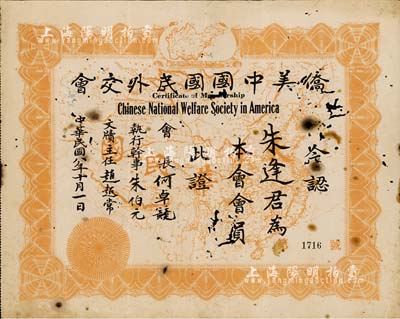 上海陽明拍賣
www.yangmingauction.com
僑美中國國民外交會
Certificate of Membership
Chinese National Welfare Society in America
茲
認
朱逢君為
本會會員
此證
會長何卓競
執行幹事朱伯元
文牘主任趙越常
中華民國八年十月一日
第 1716 號
上海陽明拍賣
www.yangmingauction.com